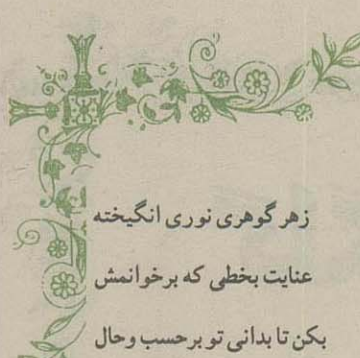 زهر گوهری نوری انگیخته
عنایت بخطی که برخوانمش
بکن تا بدانی تو برحسب وحال